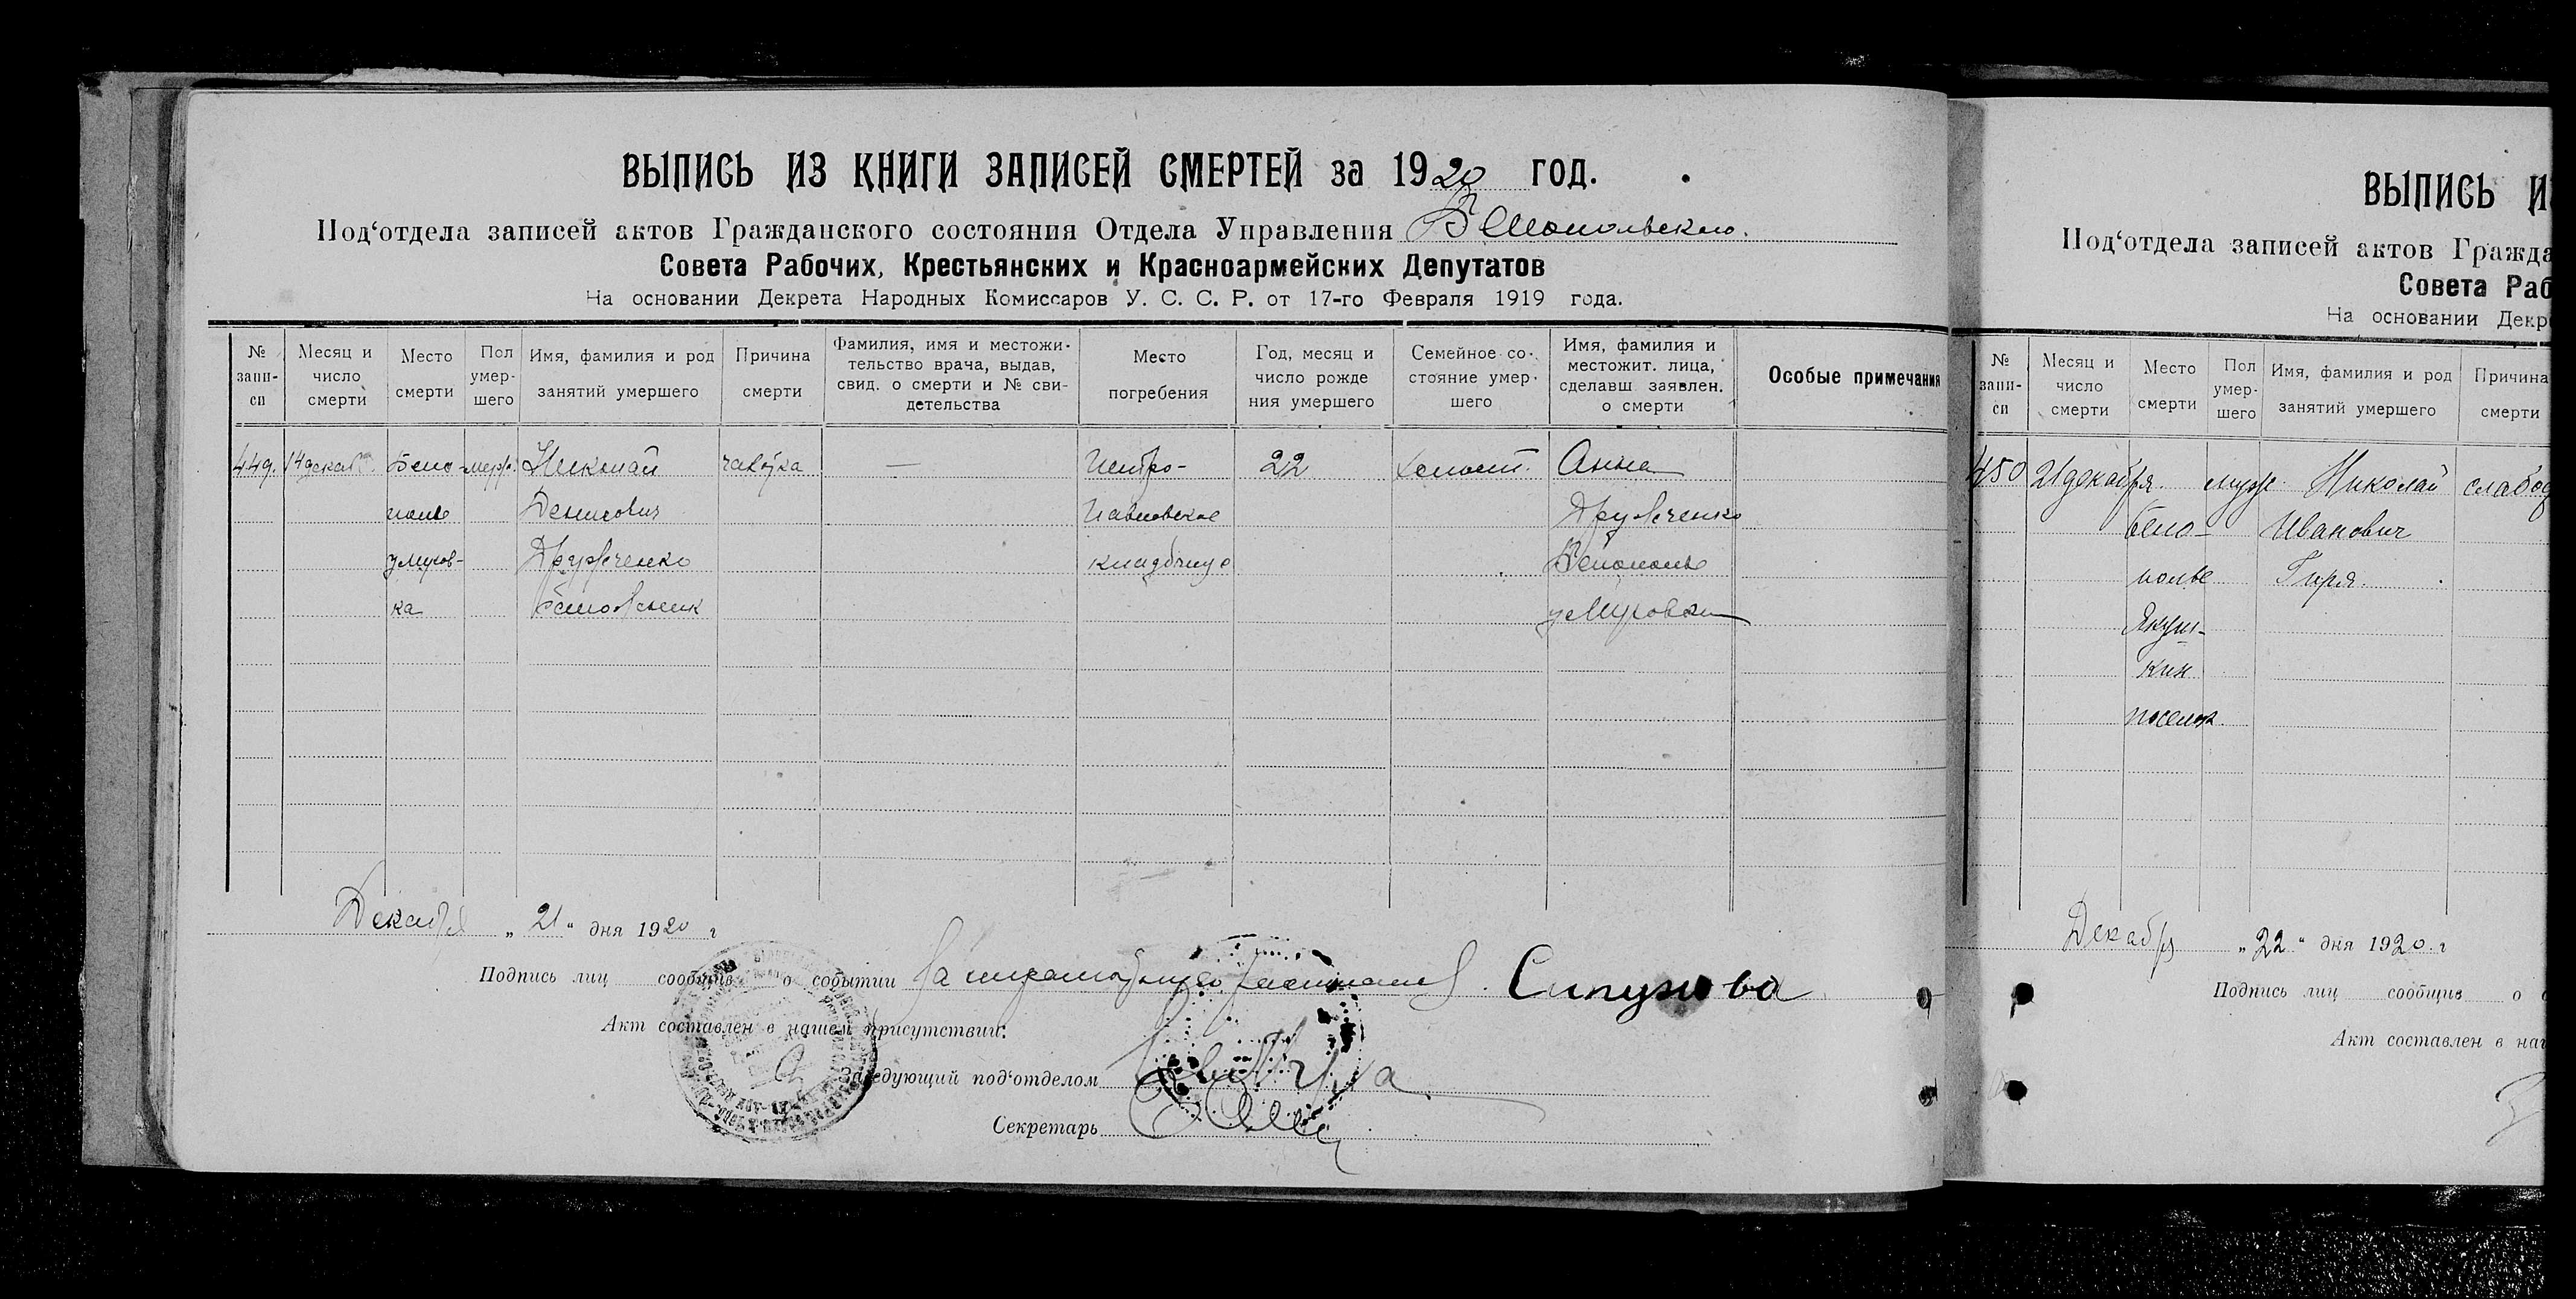 ВЫПИСЬ ИЗ КНИГИ ЗАПИСЕЙ СМЕРТЕЙ за 1920 год.
Под‘отдела записей актов Гражданского состояния Отдела Управления Белопольского.
Совета Рабочих, Крестьянских и Красноармейских Депутатов
На основании Декрета Народных Комиссаров У. С. С. Р. от 17-го Февраля 1919 года.
№ запи-си
Месяц и число смерти
Место смерти
Пол умер-шего
Имя, фамилия и род занятий умершего
Причина смерти
Фамилия, имя и местожи-тельство врача, выдав, свид. о смерти и № сви-детельства
Место погребения
Год, месяц и число рожде ния умершего
Семейное со-стояние умер-шего
Имя, фамилия и местожит. лица, сделавш заявлен. о смерти
Особые примечания
449. 14 декаб. Бело- муж. Николай — Петро- 22 холост. Анна
полье Денисович Павловское Друженко
ка кладбище Белополье
Декабря „21“ дня 1920 г
Подпись лиц сообщив о событии Сипунова
Акт составлен в нашем присутствии:
Заведующий под‘отделом
Секретарь
ВЫПИСЬ И
Под‘отдела записей актов Гражда
Совета Раб
На основании Декр
№ запи-си
Месяц и число смерти
Место смерти
Пол умер-шего
Имя, фамилия и род занятий умершего
Причина смерти
450 21 декабря. муж. Николай слабо
Бело- Иванович
полье Гиря.
Якуш-
кин
поселок
Декабря „22“ дня 1920 г
Подпись лиц сообщив о
Акт составлен в наш